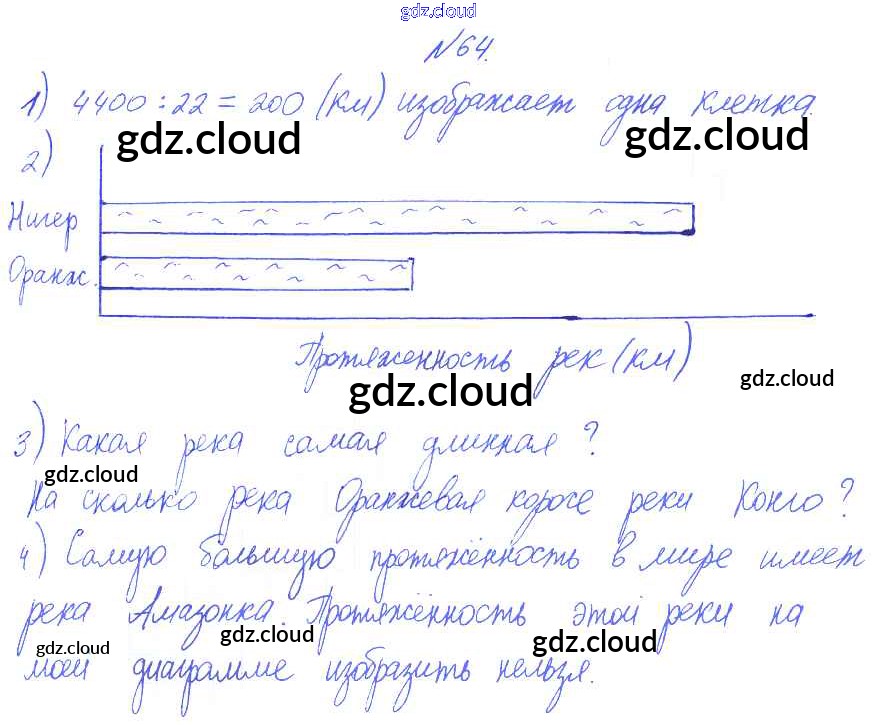 gdz.cloud
№64.
1) 4400 : 22 = 200 (км) изображает одна клетка.
gdz.cloud gdz.cloud
2)
Нигер
Оранж.
Протяженность рек (км)
gdz.cloud gdz.cloud
3) Какая река самая длинная?
gdz.cloud
На сколько река Оранжевая короче реки Конго?
4) Самую большую протяжённость в мире имеет
река Амазонка. Протяжённость этой реки на
gdz.cloud gdz.cloud gdz.cloud
моей диаграмме изобразить нельзя.